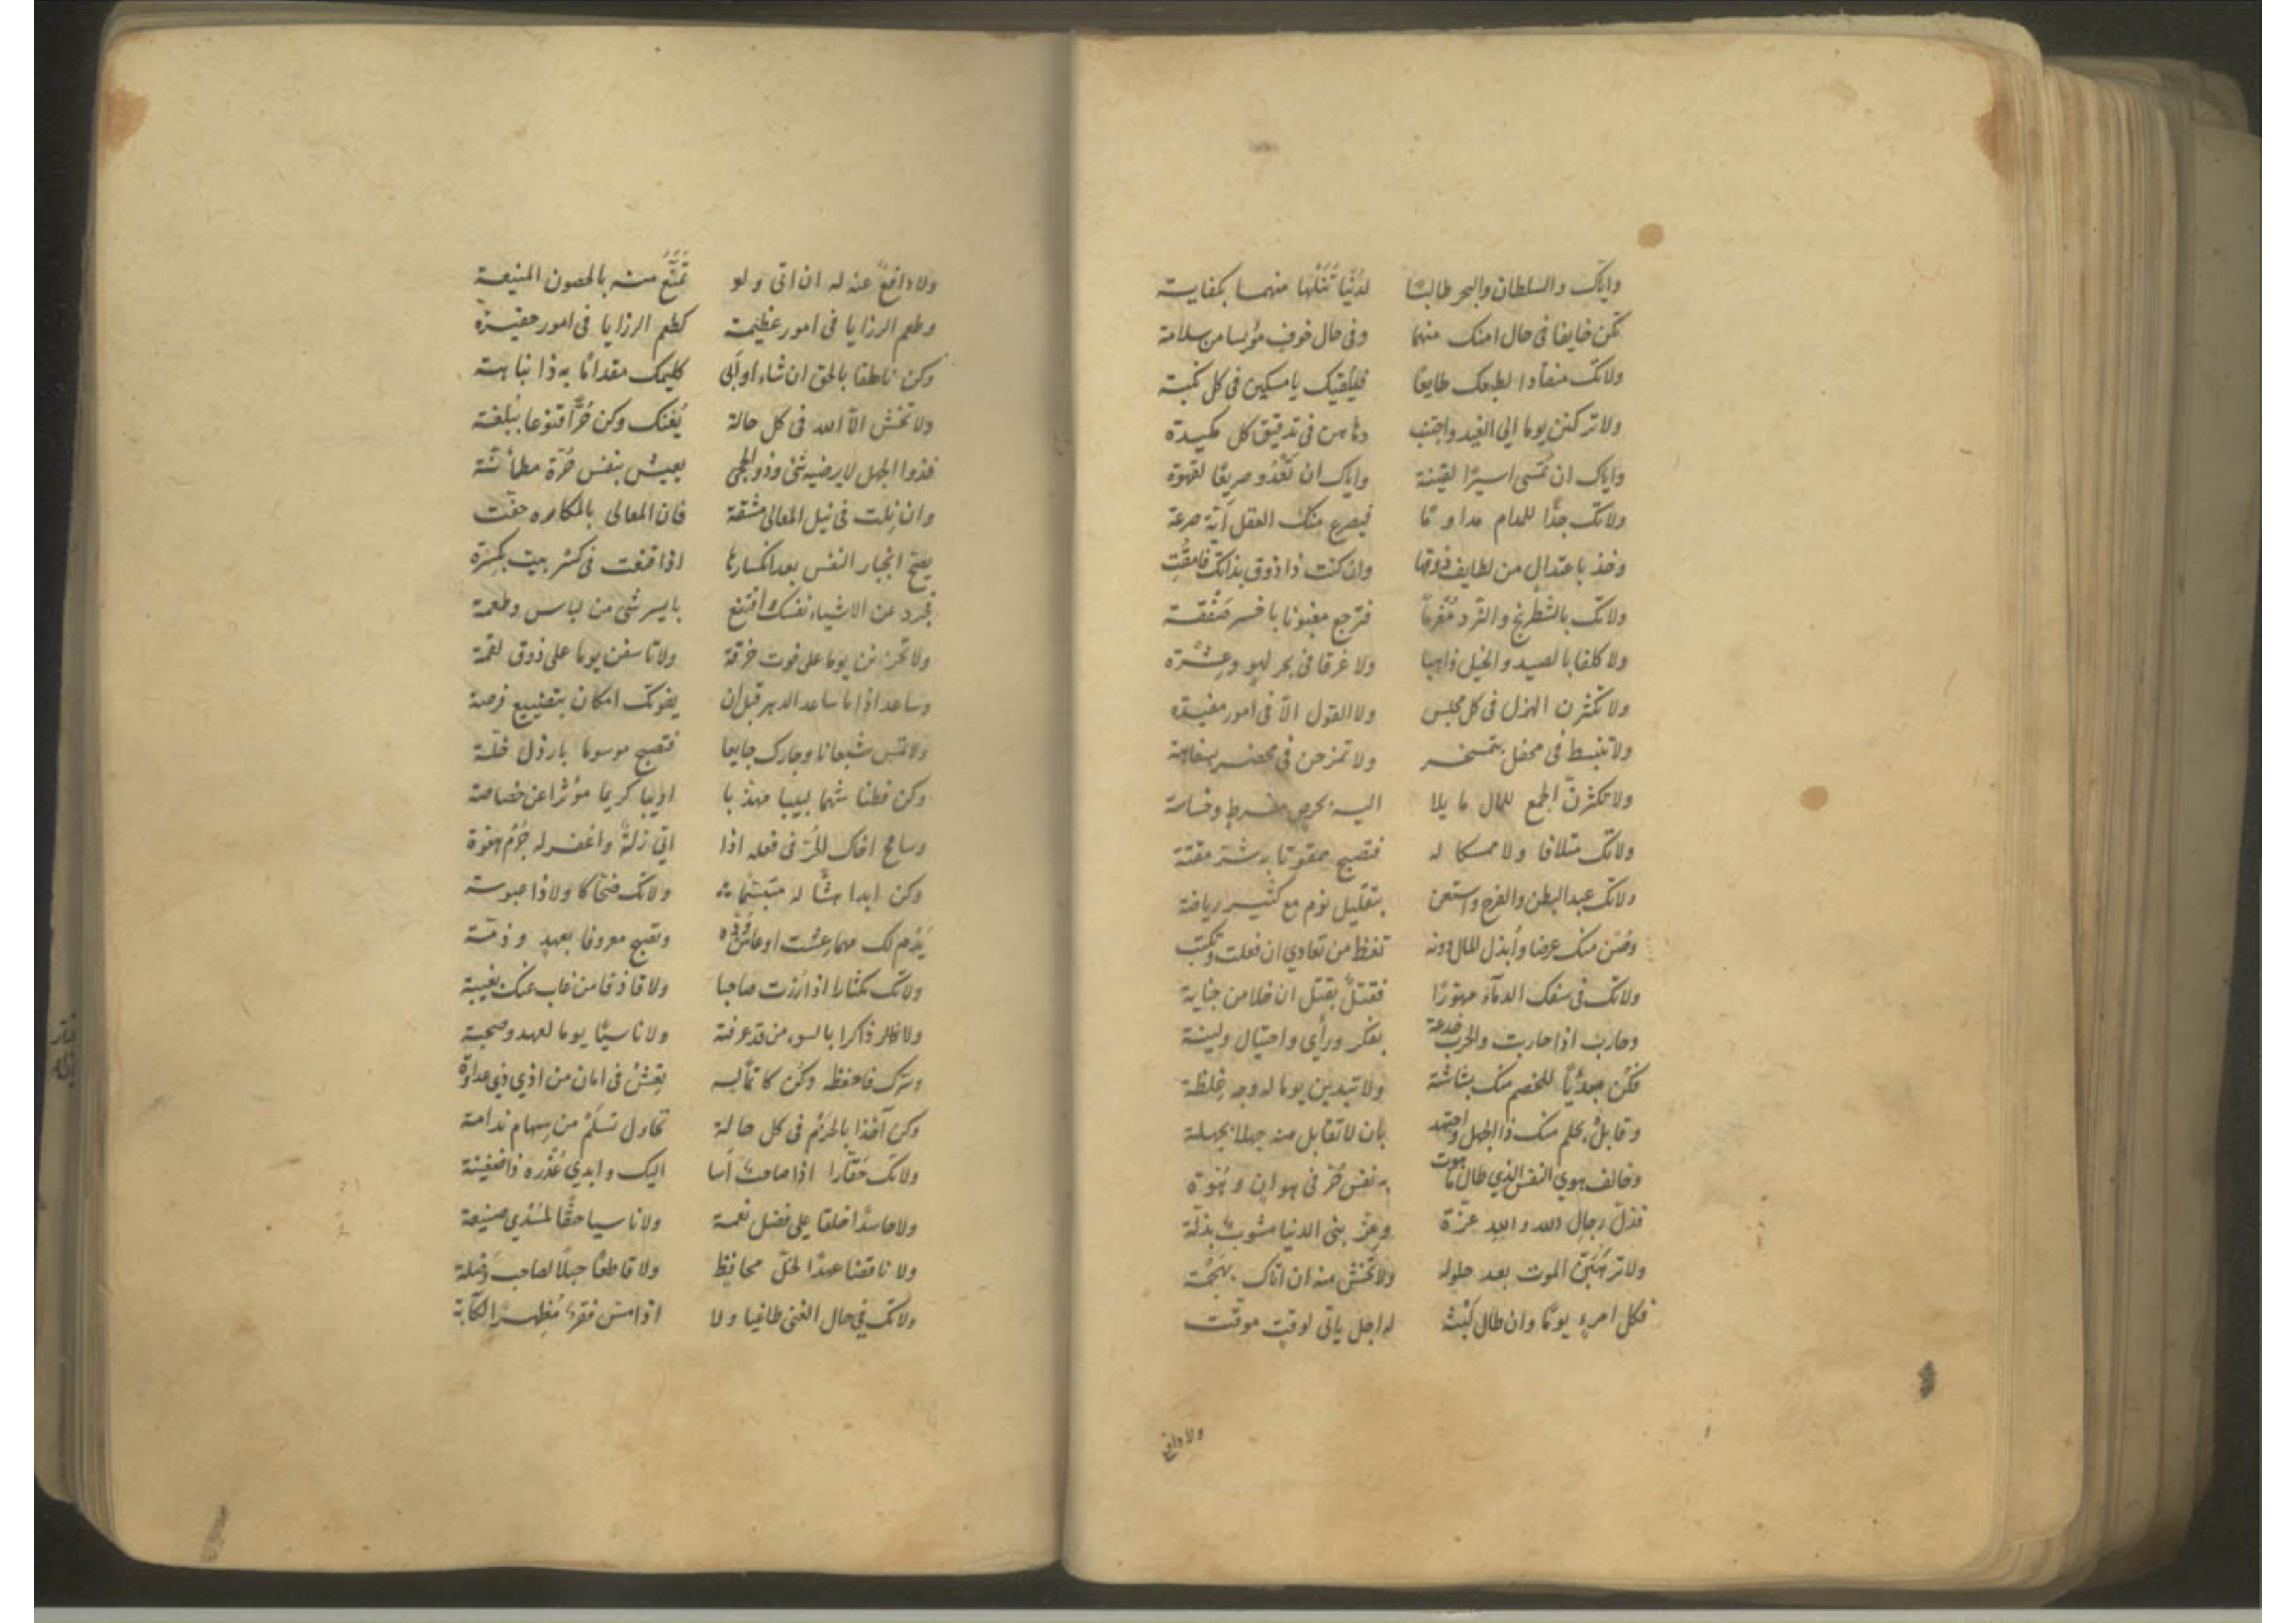 واياك والسلطان والبحر طالبًا لدُنْيا تَنَلْها منهما بكفاية
تكن خايفا فى حال امنك منهما وفى حال خوف مؤيسا من سلامة
ولاتك منقادا لطبعك طايعًا فيلقيك يا مسكين فى كل نكبة
ولا تركنن يوما الى الغيد واجتنب دهاهن فى تدقيق كل مكيدة
واياك ان تمسى اسيرًا لقينة واياك ان تَغْدُو صريعًا لقهوة
ولاتك جدًّا للمدام مداومًا فيصرع منك العقل أيّة صرعة
وخذ باعتدال من لطايف ذوقها وان كنت ذا ذوق بذالك فامقُتِ
ولاتك بالشطرنج والنرد مُغْرمًا فترجع مغبونا باخسر صَفْقة
ولا كلفا بالصيد والخيل ذاهبا ولا غرقا فى بحر لهو وعِشْرة
ولا تكثرن الهزل فى كل مجلس ولا القول الّا فى امور مفيدة
ولا تنبسط فى محفل بتمسخر ولا تمزحن فى محضر بسفاهة
ولا تكثرنّ الجمع للمال مايلا اليه بحرص مفرط وخساسة
ولاتك متلافا ولا ممسكا له فتصبح ممقوتا به شرّ مقتة
ولاتك عبد البطن والفرج واستعن بتقليل نوم مع كثير رياضة
وصُن منك عرضا وأبذل المال دونه تغظ من تعادي ان فعلت وتكبت
ولاتك فى سفك الدمآء مهوّرًا فقتلٌ بقتل ان خلا من جناية
وحارب اذا حاربت والحرب خدعة بفكر ورأي واحتيال ولينة
فكُن مبديًا للخصم منك بشاشة ولا تبدين يوما له وجه غلظة
وقابل بحلم منك ذا الجهل واجتهد بان لا تقابل منه جهلا بجهلة
وخالف هوي النفس الذي طال ما هوت به نفس حُرّ فى هوان وهُوّة
فذلّ رجال الله والله عزّة وعزّ بنى الدنيا مشوبٌ بذلّة
ولا ترهَبَنّ الموت بعد حلوله ولا تخش منه ان اتاك بهجمة
فكل امرء يومًا وان طال لُبْثه له اجل ياتى لوقت موقت
ولا دافع
ولا دافعٌ عنه له ان اتى ولو تَمَنَّعَ منه بالحصون المنيعة
وطعم الرزايا فى امور عظيمة كطعم الرزايا فى امور حقيرة
وكن ناطقا بالحق ان شاء او أبى كليمك مقدامًا به ذا نباهة
ولا تخش الّا الله فى كل حالة يُغنك وكن حُرًّا قنوعا ببُلغة
فذوا الجهل لا يرضيه شئ وذو الحجى يعيش بنفس حُرّة مطمأنّة
وان نلت فى نيل المعالى مشقة فان المعالى بالمكاره حفّت
يصحّ انجبار النفس بعد انكسارها اذا قنعت فى كسر بيت بكسرة
تجرد عن الاشياء نفسك واقتنع بايسر شئ من لباس وطعمة
ولا تحزنن يوما على فوت خرقة ولا تاسفن يوما على ذوق لقمة
وساعد اذا ما ساعد الدهر قبل ان يفوتك امكان بتضييع فرصة
ولا تمس شبعانا وجارك جايعا فتصبح موسوما بارذل خلّة
وكن فطنا شهما لبيبا مهذبا اديبا كريما مؤثرا عن خصاصة
وسامح اخاك الحُرّ فى فعله اذا اتي زلّةً واغفر له جُرْم هفوة
وكن ابدا هشًّا له متبسّما ولاتك ضحّاكا ولا ذا عبوسة
يَدُم لك مهما عشت او عاش وُدّه وتصبح معروفا بعهد وذمّة
ولاتك مكثارا اذا زُرْت صاحبا ولا قاذفا من غاب عنك بغيبة
ولا ذاكرا بالسوء من قد عرفته ولا ناسيًا يوما لعهد وصحبة
وسرك فاحفظه وكُن كاتمًا له تعِشْ فى امان من اذي ذي عداوة
وكن آخذا بالحزْم فى كل حالة تحاول تسلَمْ من سهام ندامة
ولاتك حَقّارا اذا صاحبٌ أسا اليك وابدي عُذْره ذا ضغينة
ولا حاسدًا خلقا على فضل نعمة ولا ناسيا حقًّا لمُسْدي صنيعة
ولا ناقضا عهدًا لخلّ محافظ ولا قاطعًا حبلًا لصاحب وُصْلة
ولاتك في حال الغنى طاغيا ولا اذا مسّ فقرٌ مُظهرًا لكآبة